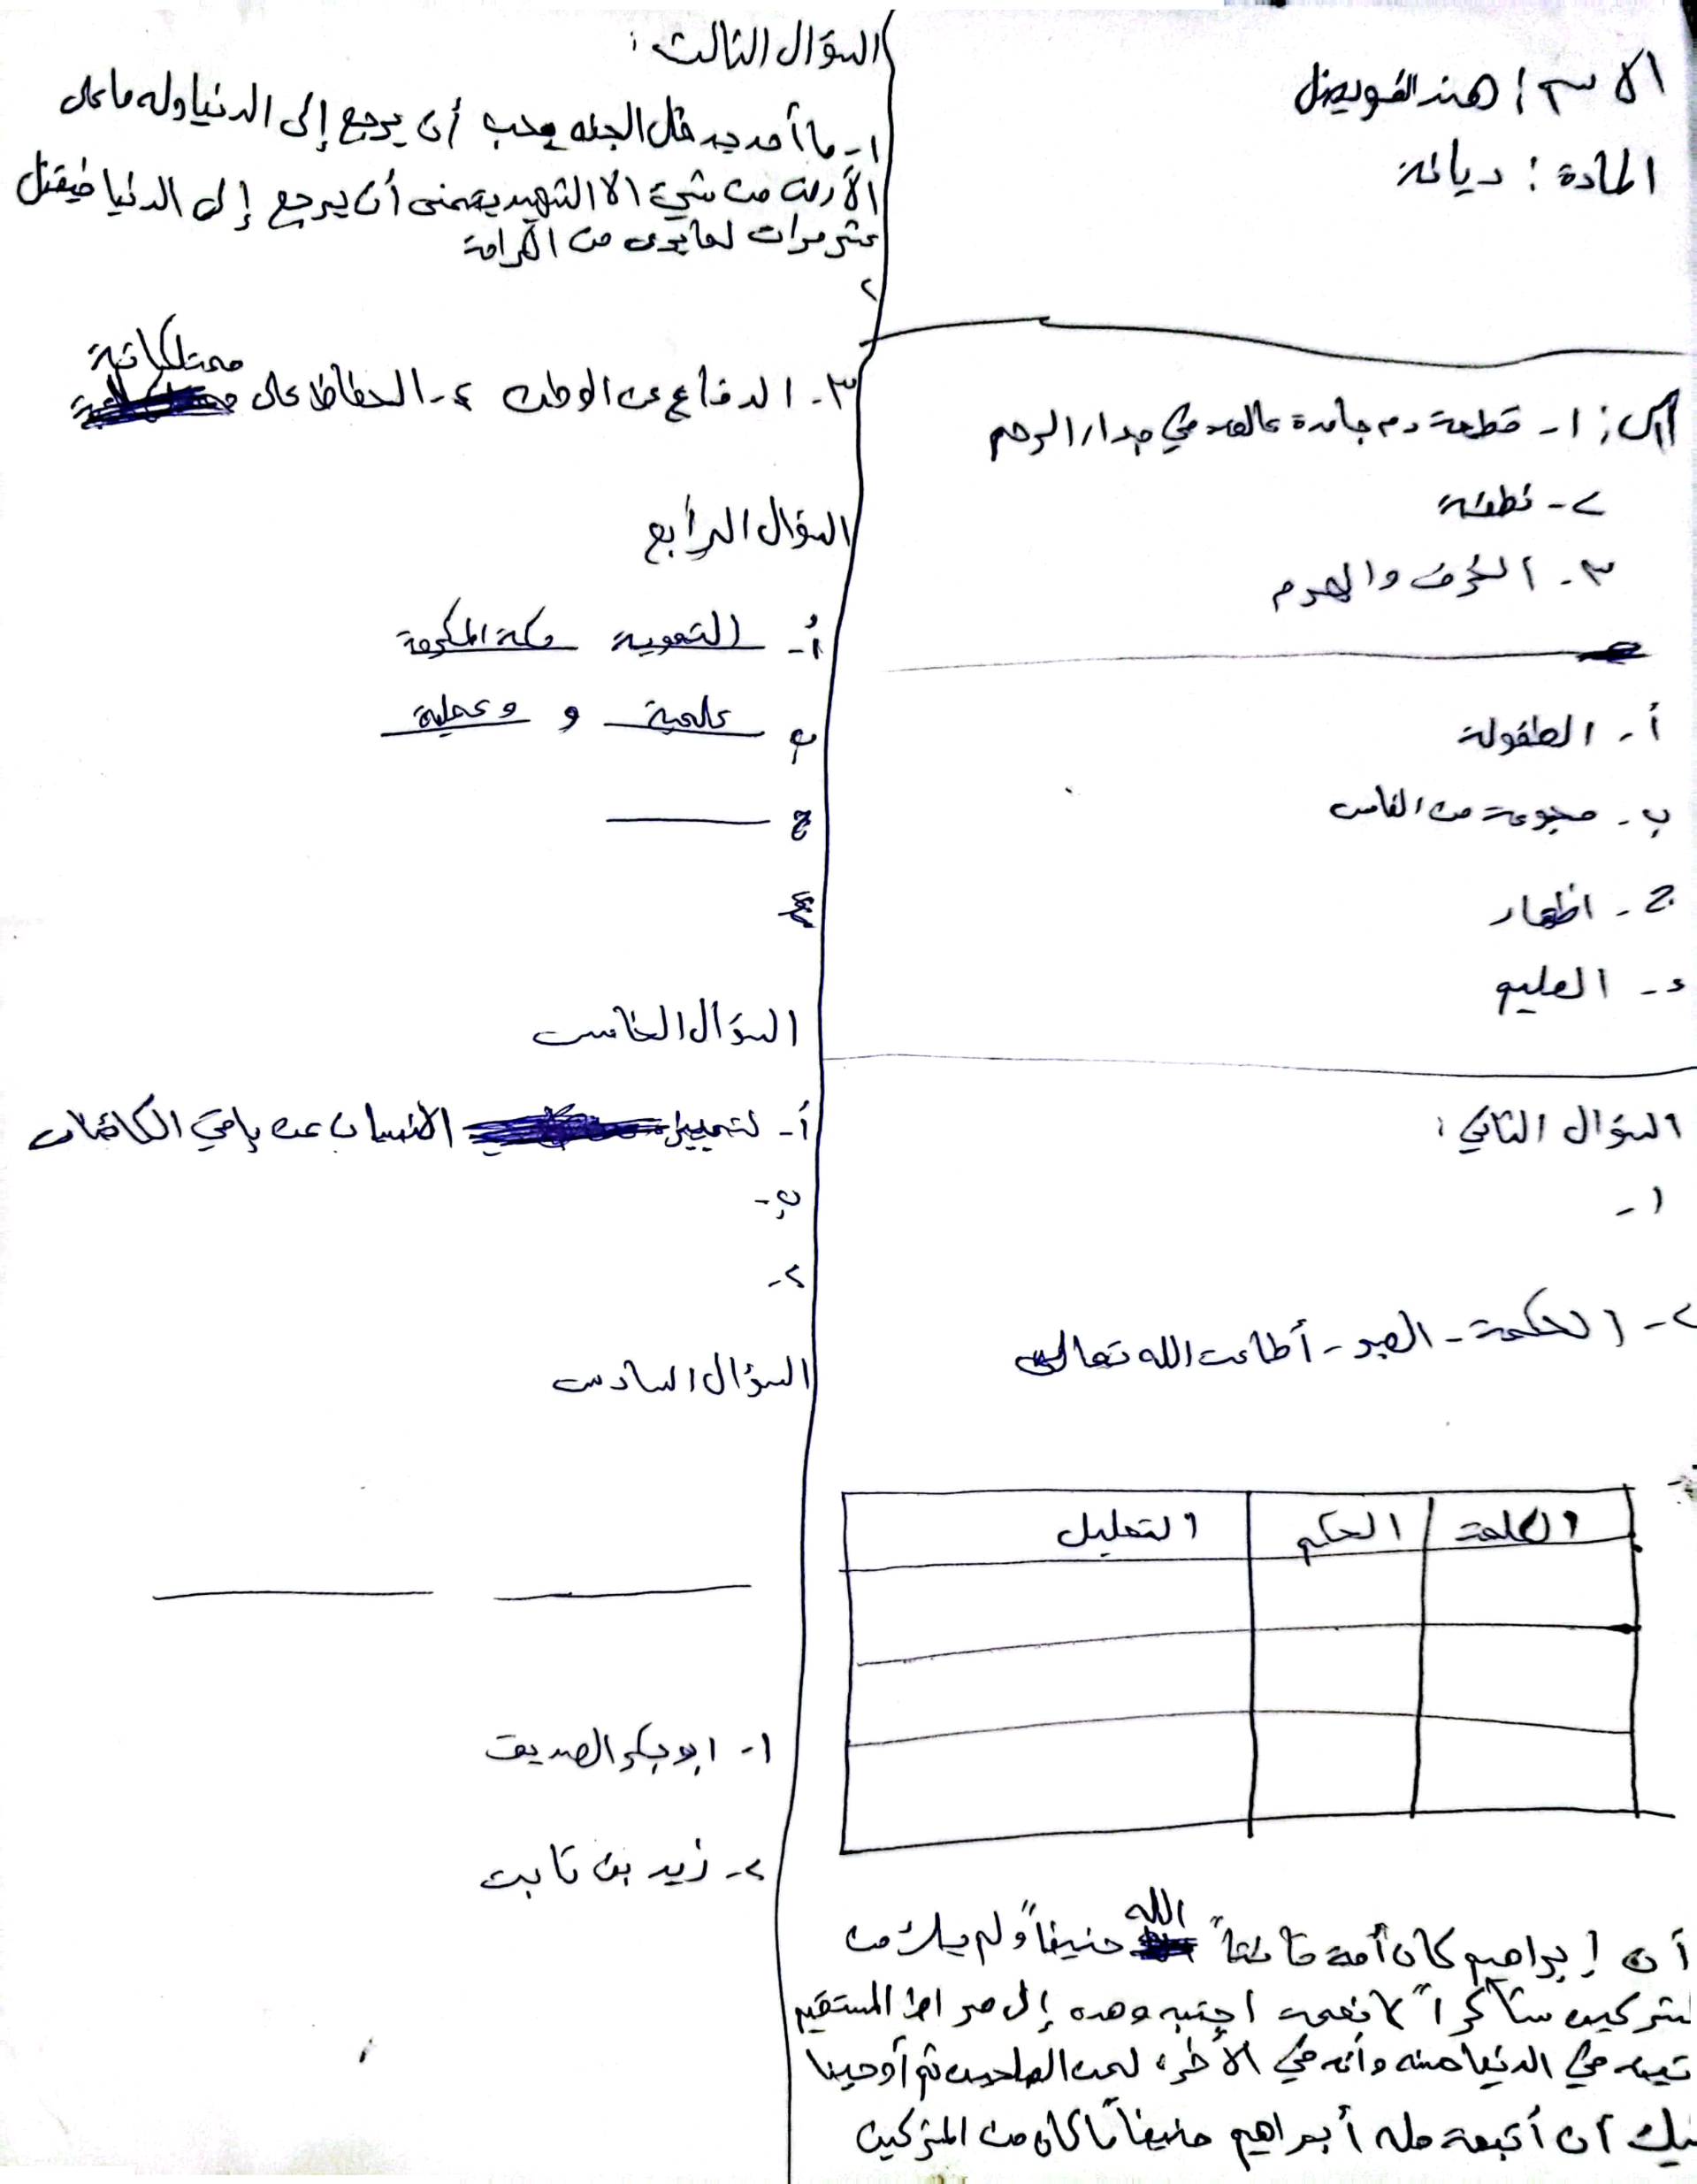 الاسم : هند القويضل
المادة : ديانة
س١ : ١- قطعة دم جامدة عالقة في جدار الرحم
٢- نطفة
٣- الخرف والهرم
أ- الطفولة
ب- مجموعة من الناس
ج- اظهار
د- العليم
السؤال الثاني :
١-
٢- الحكمة - الصبر - أطاعت الله تعالى
الكلمة الحكم التعليل
أن إبراهيم كان أمة قانتاً الله حنيفاً ولم يك من
لمشركين شاكراً لانعمه اجتبه وهده إلى صراط المستقيم
تينه في الدنيا حسنه وأنه في الأخرة لمن الصلحين ثم أوحينا
ليك ان أتبعة مله أبراهيم حنيفاً ما كان من المشركين
السؤال الثالث :
١- ما أحد يدخل الجنه يحب أن يرجع إلى الدنيا وله ما على
الأرض من شيء الا الشهيد يتمنى أن يرجع إلى الدنيا فيقتل
عشر مرات لما يرى من الكرامة
٢
٣- الدفاع عن الوطن ٤- الحفاظ على ممتلكاتة
السؤال الرابع
أ- التعوية مكة المكرمة
ب علمية و وعملية
ج
السؤال الخامس
أ- لتمييز الانسان عن باقي الكائنات
ب-
٢-
السؤال السادس
١- ابو بكر الصديق
٢- زيد بن ثابت